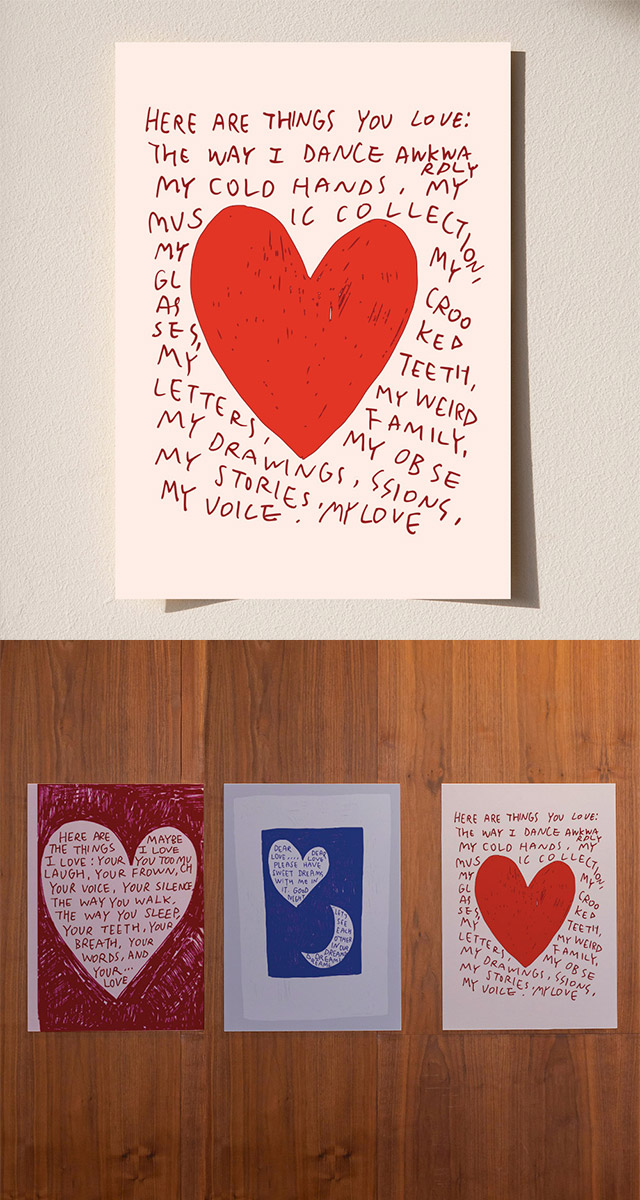 HERE ARE THINGS YOU LOVE:
THE WAY I DANCE AWKWA
RDLY
MY COLD HANDS, MY
MUS IC COLLECTION,
MY MY
GL CROO
AS KED
SES,
MY TEETH,
LETTERS, MY WEIRD
MY DRAWINGS, FAMILY,
MY STORIES, MY OBSE
SSIONS,
MY VOICE. MY LOVE
HERE ARE
THE THINGS
I LOVE: YOUR
MAYBE
I LOVE
YOU TOO MU
LAUGH, YOUR FROWN, CH
YOUR VOICE, YOUR SILENCE
THE WAY YOU WALK,
THE WAY YOU SLEEP,
YOUR TEETH, YOUR
BREATH, YOUR
WORDS, AND
YOUR...
LOVE
DEAR
LOVE.... DEAR
LOVE
PLEASE HAVE
SWEET DREAMS
WITH ME IN
IT. GOOD
NIGHT
LET'S
SEE
EACH
OTHER
IN OUR
DREAMS
HERE ARE THINGS YOU LOVE:
THE WAY I DANCE AWKWA
RDLY
MY COLD HANDS, MY
MUS IC COLLECTION,
MY MY
GL CROO
AS KED
SES,
MY TEETH,
LETTERS, MY WEIRD
MY DRAWINGS, FAMILY,
MY STORIES, MY OBSE
SSIONS,
MY VOICE. MY LOVE